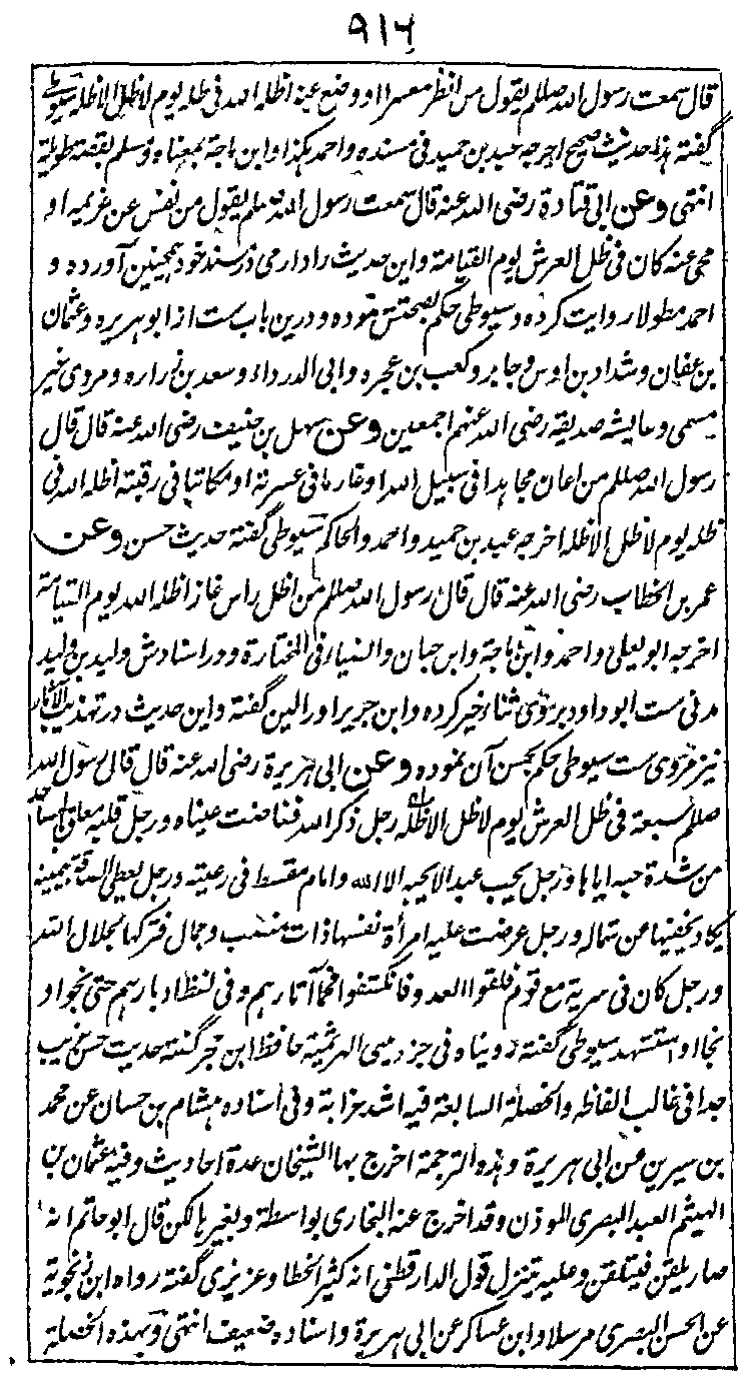 ٩١٦
قال سمعت رسول الله صللم يقول من انظر معسرا او وضع عنه اظله الله فى ظله يوم لا ظل الا ظله سيوطى
گفته هذا حديث صحيح اخرجه عبد بن حميد فى مسنده واحمد هكذا وابن ماجة بمعناه ومسلم بقصة طويلة
انتهى وعن ابى قتادة رضى الله عنه قال سمعت رسول الله صللم يقول من نفس عن غريمه او
محى عنه كان فى ظل العرش يوم القيامة واين حديث را دارمى در مسند خود همچنين آورده و
احمد مطولا روايت كرده و سيوطى حكم بصحتش نموده و درين باب ست از ابو هريره وعثمان
بن عفان وشداد بن اوس وجابر وكعب بن عجره وابى الدرداء وسعد بن زراره ومردى غير
مسمى وعايشه صديقه رضى الله عنهم اجمعين وعن سهل بن حنيف رضى الله عنه قال قال
رسول الله صللم من اعان مجاهدا فى سبيل الله او غارما فى عسرته او مكاتبا فى رقبته اظله الله فى
ظله يوم لا ظل الا ظله اخرجه عبد بن حميد واحمد والحاكم سيوطى گفته حديث حسن وعن
عمر بن الخطاب رضى الله عنه قال قال رسول الله صللم من اظل راس غاز اظله الله يوم القيامة
اخرجه ابو يعلى واحمد وابن ماجة وابن حبان والضياء فى المختارة ودر اسنادش وليد بن وليد
مدنى ست ابو داود بروى ثناء خير كرده وابن جرير اورا لين گفته واين حديث در تهذيب الآثار
نيز مروى ست سيوطى حكم بحسن آن نموده وعن ابى هريرة رضى الله عنه قال قال رسول الله
صللم سبعة فى ظل العرش يوم لا ظل الا ظله رجل ذكر الله ففاضت عيناه ورجل قلبه معلق بالمساجد
من شدة حبه اياها ورجل يحب عبدا لا يحبه الا لله وامام مقسط فى رعيته ورجل يعطى الصدقة بيمينه
يكاد يخفيها عن شماله ورجل عرضت عليه امرأة نفسها ذات منصب وجمال فتركها لجلال الله
ورجل كان فى سرية مع قوم فلقوا العدو فانكشفوا فحمى آثارهم وفى لفظ ادبارهم حتى نجوا و
نجا او استشهد سيوطى گفته رويناه فى جزء بيبى الهرثمية حافظ ابن حجر گفته حديث حسن غريب
جدا فى غالب الفاظه والخصلة السابعة فيه اشد غرابة وفى اسناده هشام بن حسان عن محمد
بن سيرين عن ابى هريرة وهذه الترجمة اخرج بها الشيخان عدة احاديث وفيه عثمان بن
الهيثم العبد البصرى الموذن وقد اخرج عنه البخارى بواسطة وبغيرها لكن قال ابو حاتم انه
صار يلقن فيتلقن وعليه يتنزل قول الدارقطنى انه كثير الخطا وعزيزى گفته رواه ابن زنجويه
عن الحسن البصرى مرسلا وابن عساكر عن ابى هريرة واسناده ضعيف انتهى وبهذه الخصلة